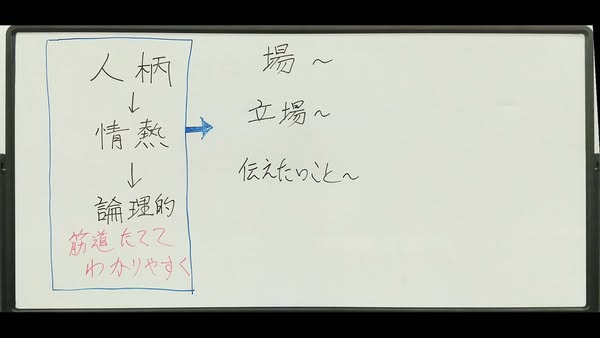 人柄
↓
情熱
↓
論理的
筋道たてて
わかりやすく
→
場〜
立場〜
伝えたいこと〜